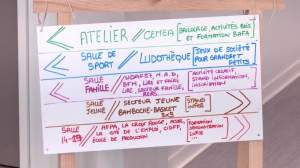 ATELIER // CEMEA [BRICOLAGE, ACTIVITÉS BOIS
ET FORMATION BAFA]
SALLE DE SPORT // LUDOTHÈQUE [JEUX DE SOCIÉTÉ
POUR GRANDS ET PETITS]
SALLE FAMILLE // UDAF37, M.A.D,
LIRE ET FAIRE
LIRE, SECTEUR FAMILLE,
[ACTIVITÉ CRÉATIF,
STAND INFORMATION,
INSCRIPTION]
SALLE JEUNE // SECTEUR JEUNE
BAMBOCHE-BASKET
3x3
[STAND INFOS]
SALLE 14- // AFPA, LA CROIX ROUGE,
LA CITÉ DE L'EMPLOI, CIDFF,
ÉCOLE DE PRODUCTION
[FORMATION
DÉMONSTRATION
INFOS]